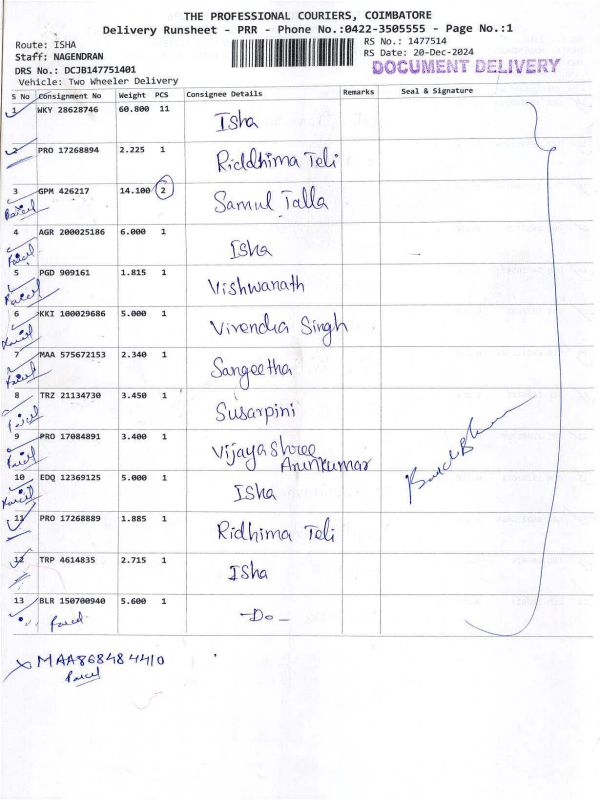 THE PROFESSIONAL COURIERS, COIMBATORE
Delivery Runsheet - PRR - Phone No.:0422-3505555 - Page No.:1
Route: ISHA
RS No.: 1477514
Staff: NAGENDRAN
RS Date: 20-Dec-2024
DRS No.: DCJB147751401
DOCUMENT DELIVERY
Vehicle: Two Wheeler Delivery
S No Consignment No Weight PCS Consignee Details Remarks Seal & Signature
1 WKY 28628746 60.800 11 Isha
2 PRO 17268894 2.225 1 Riddhima Teli
3 GPM 426217 14.100 2 Samul Talla
Parcel
4 AGR 200025186 6.000 1 Isha
Parcel
5 PGD 909161 1.815 1 Vishwanath
Parcel
6 KKI 100029686 5.000 1 Virendra Singh
Parcel
7 MAA 575672153 2.340 1 Sangeetha
Parcel
8 TRZ 21134730 3.450 1 Susarpini
Parcel
9 PRO 17084891 3.400 1 Vijayashree
Arunkumar
Parcel
10 EDQ 12369125 5.000 1 Isha
Parcel
11 PRO 17268889 1.885 1 Ridhima Teli
12 TRP 4614835 2.715 1 Isha
13 BLR 150700940 5.600 1 -Do-
Parcel
MAA868484410
Parcel